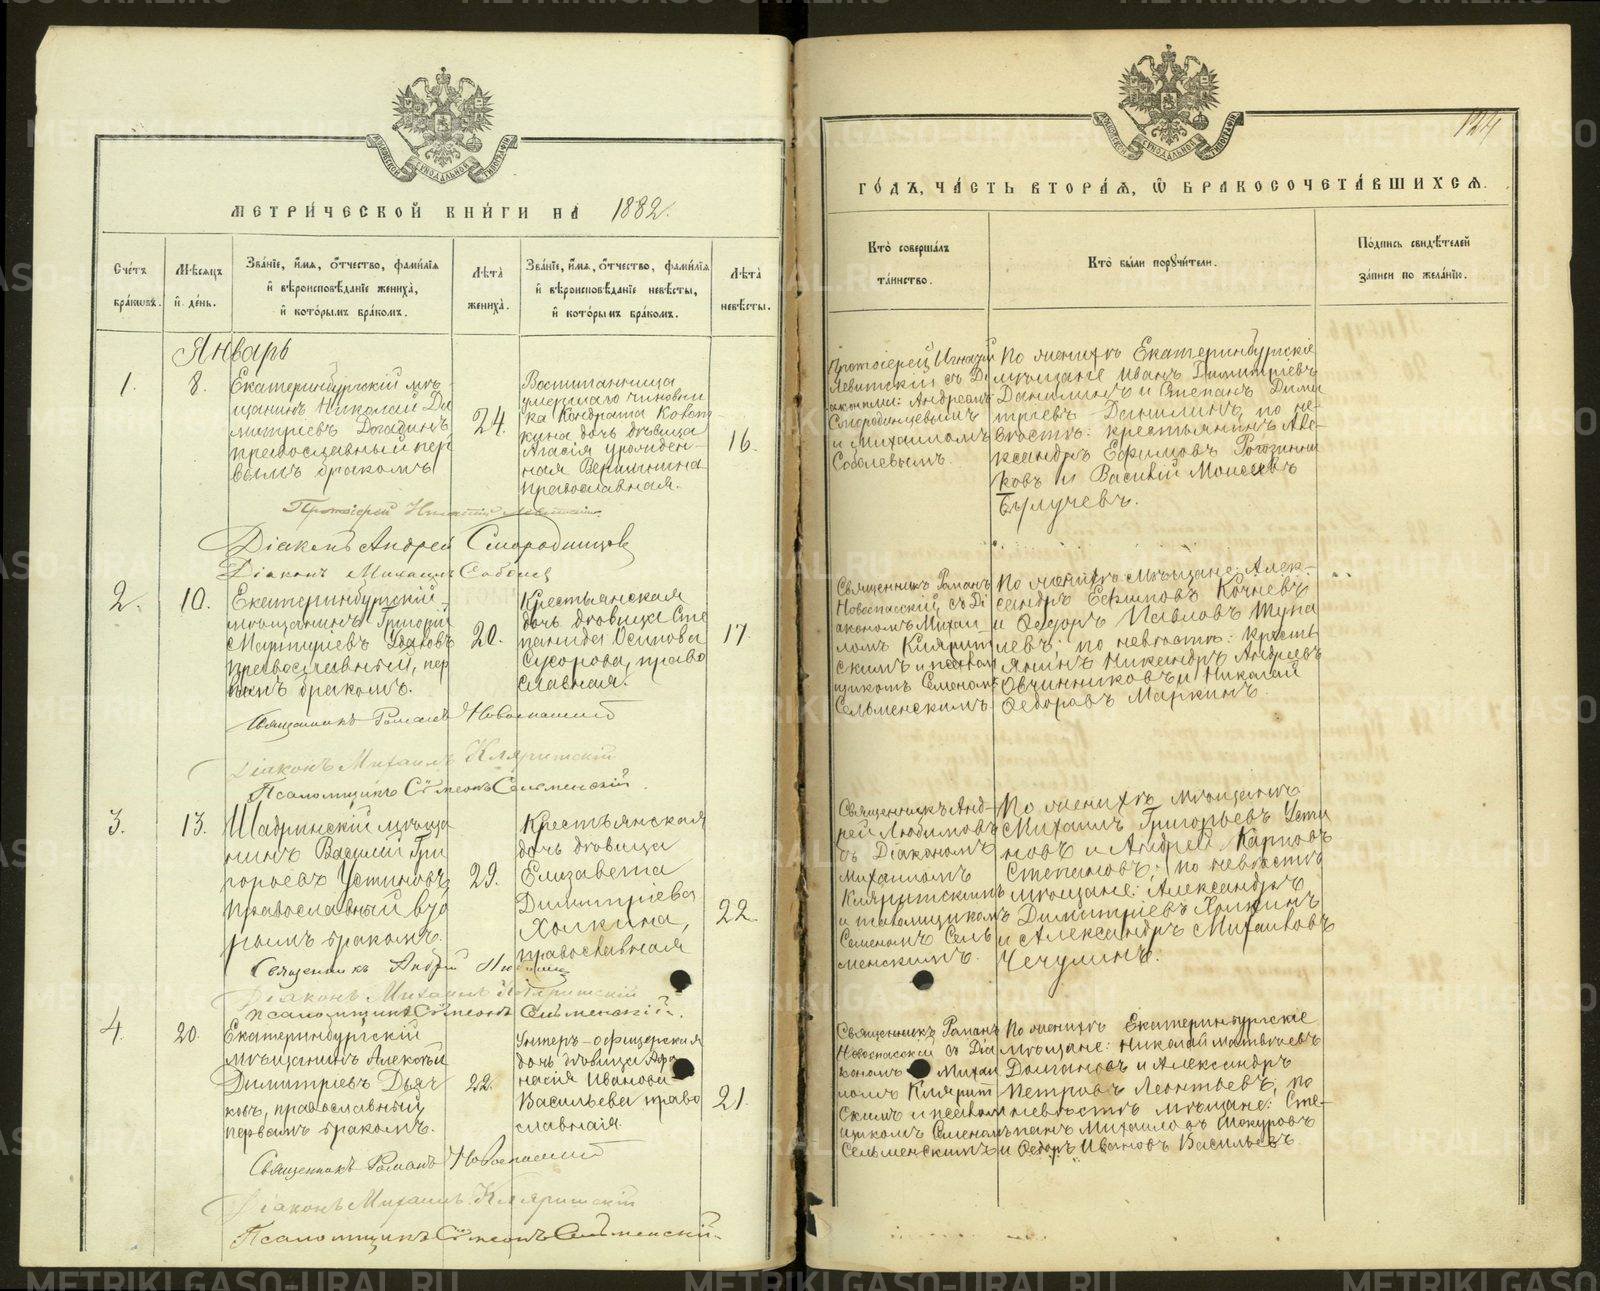 МЕТРИ́ЧЕСКОЙ КНИ́ГИ НА 1882.
Счетъ браковъ.
Мѣсяцъ и день.
Званіе, имя, отчество, фамилія и вѣроисповѣданіе жениха, и которымъ бракомъ.
Лѣта жениха.
Званіе, имя, отчество, фамилія и вѣроисповѣданіе невѣсты, и которымъ бракомъ.
Лѣта невѣсты.
Январь
1.
8.
Екатеринбургскій мѣ-
щанинъ Николай Ди
митріевъ
православный пер
вымъ бракомъ
24.
Воспитанница
умершаго чиновни
ка Кондрата
дочь дѣвица
урожден-
ная Вершинина
православная.
16.
Протоіерей Игнатій Левитскій
Діаконъ Андрей Смородинцовъ
Діаконъ Михаилъ Соболевъ
2.
10.
Екатеринбургскій
мѣщанинъ Григорій
Мартиріевъ
православный, пер
вымъ бракомъ.
20.
Крестьянская
дочь дѣвица Сте
панида Осипова
Сухорова, право
славная.
17.
Священникъ Романъ Новоспасскій
Діаконъ Михаилъ Кляритскій
Псаломщикъ Сѵмеонъ Сельменскій.
3.
13.
Шадринскій мѣща
нинъ Василій Гри
горьевъ Устиновъ
православный вто
рымъ бракомъ.
29.
Крестьянская
дочь дѣвица
Елизавета
Димитріева
Холкина,
православная
22.
Священникъ Андрей Любимовъ
Діаконъ Михаилъ Кляритскій
Псаломщикъ Сѵмеонъ Сельменскій.
4.
20.
Екатеринбургскій
мѣщанинъ Алексѣй
Димитріевъ Дьяч
ковъ, православный
первымъ бракомъ.
22.
Унтеръ-офицерская
дочь дѣвица Афа
насія Иванова
Васильева право
славная.
21.
Священникъ Романъ Новоспасскій
Діаконъ Михаилъ Кляритскій
Псаломщикъ Сѵмеонъ Сельменскій.
124
ГО́ДЪ, ЧА́СТЬ ВТОРА́Я, Ѡ БРАКОСОЧЕТА́ВШИХСЯ.
Кто совершалъ таинство.
Кто были поручители.
Подпись свидѣтелей записи по желанію.
Протоіерей Игнатій
Левитскій съ Ді
аконами: Андреемъ
Смородинцевымъ
и Михаиломъ
Соболевымъ.
По женихѣ Екатеринбургскіе
мѣщане Иванъ Димитріевъ
Данилинъ и Степанъ Дими
тріевъ Данилинъ, по не-
вѣстѣ: крестьянинъ Але-
ксандръ Ефимовъ Рогозинни
ковъ и Василій Моисеевъ
Бурлучевъ.
Священникъ Романъ
Новоспасскій съ Ді
акономъ Михаи-
ломъ Кляритъ
скимъ и псалом
щикомъ Семеномъ
Сельменскимъ.
По женихѣ мѣщане: Алек-
сандръ Ефимовъ Кочневъ
и Ѳедоръ Павловъ Тупа
левъ; по невѣстѣ: кресть
янинъ Никандръ Андреевъ
Овчинниковъ и Николай
Ѳедоровъ Маркинъ.
Священникъ Анд-
рей Любимовъ
съ Діакономъ
Михаиломъ
Кляритскимъ
и псаломщикомъ
Семеномъ Сель
менскимъ.
По женихѣ мѣщане
Михаилъ Григорьевъ Усти
новъ и Андрей Карповъ
Степановъ; по невѣстѣ
мѣщане: Александръ
Димитріевъ Холкинъ
и Александръ Михаиловъ
Чечулинъ.
Священникъ Романъ
Новоспасскій съ Діа
кономъ Михаи
ломъ Кляритъ
скимъ и псалом
щикомъ Семеномъ
Сельменскимъ
По женихѣ Екатеринбургскіе
мѣщане: Николай Матвѣевъ
Долгановъ и Александръ
Петровъ Леонтьевъ; по
невѣстѣ мѣщане: Сте-
панъ Михаиловъ
и Ѳедоръ Ивановъ Васильевъ
METRIKI.GASO-URAL.RU